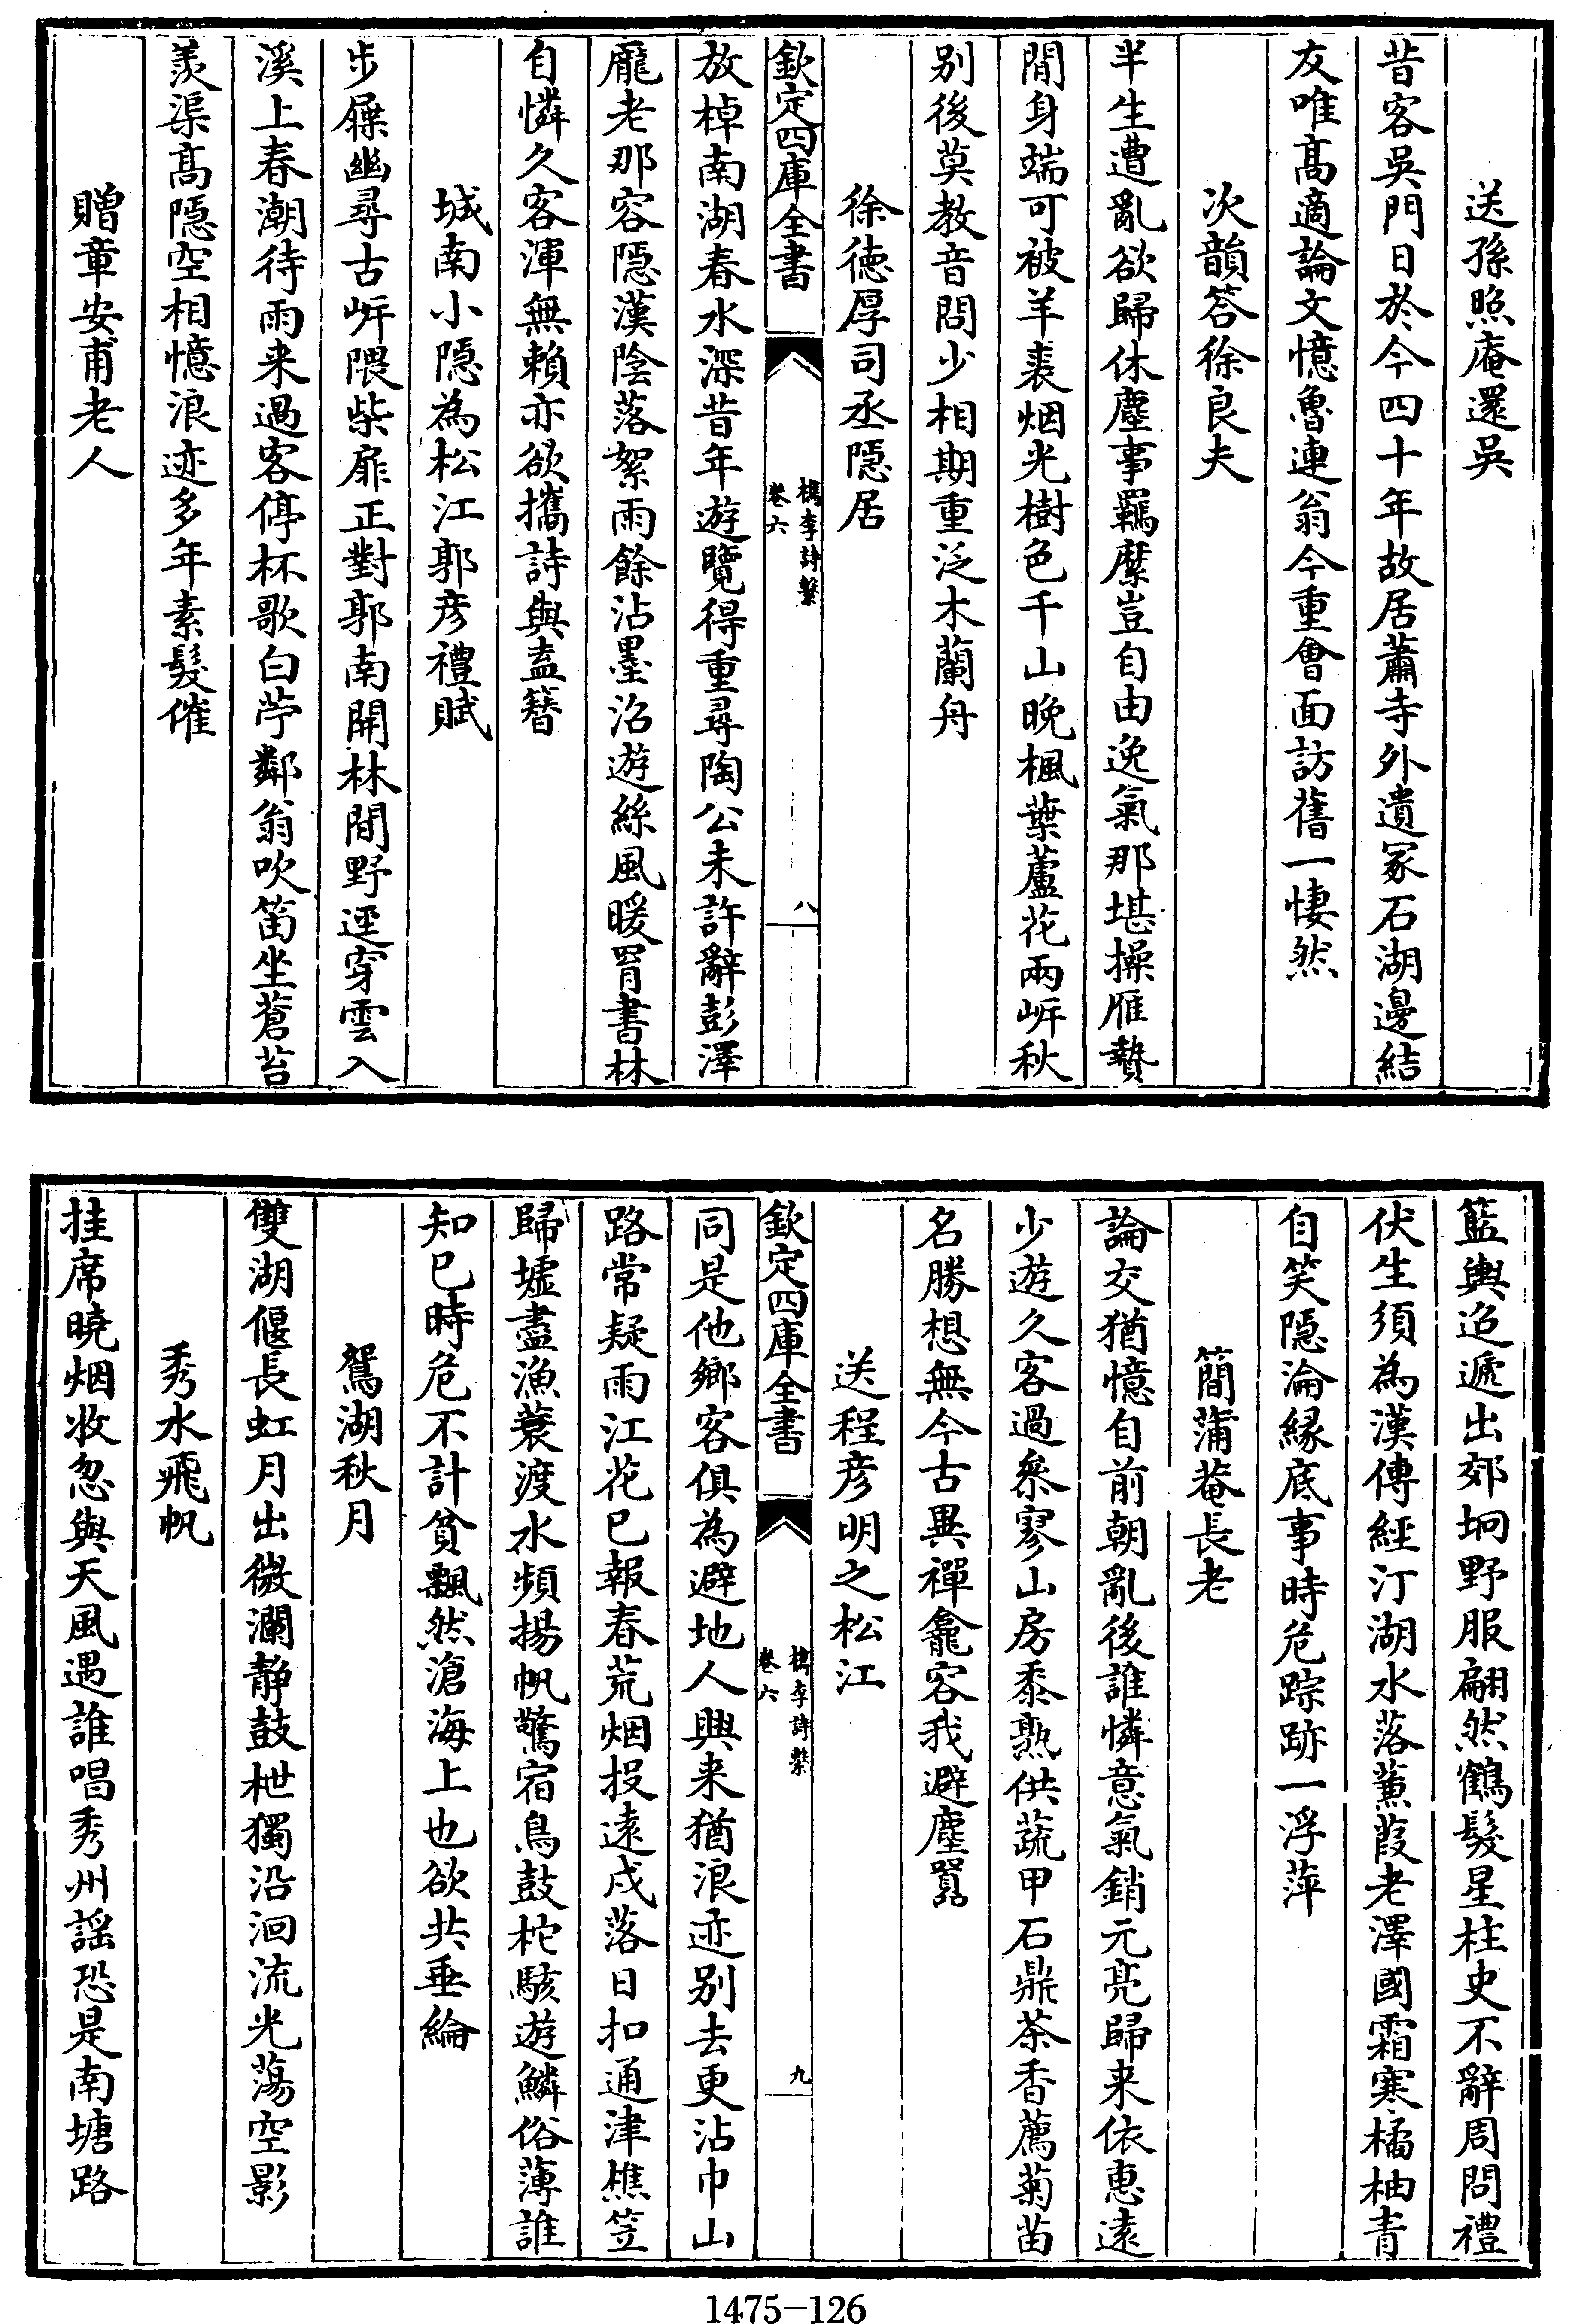 送孫照庵還吳
昔客吳門日於今四十年故居蕭寺外遺冢石湖邊結
友唯髙適論文憶魯連翁今重會面訪舊一悽然
次韻答徐良夫
半生遭亂欲歸休塵事羈縻豈自由逸氣那堪操雁贄
閒身端可被羊裘烟光樹色千山晚楓葉蘆花兩岍秋
别後莫教音問少相期重泛木蘭舟
徐德厚司丞隠居
欽定四庫全書
檇李詩繫
卷六
八
放棹南湖春水深昔年遊覽得重尋陶公未許辭彭澤
龐老那容隠漢陰落絮雨餘沾墨沼遊絲風暖罥書林
自憐久客渾無賴亦欲攜詩與盍簪
城南小隠為松江郭彦禮賦
步屧幽尋古岍隈柴扉正對郭南開林間野逕穿雲入
溪上春潮待雨来過客停杯歌白苧鄰翁吹笛坐蒼苔
羡渠髙隠空相憶浪迹多年素髮催
贈章安甫老人
籃輿迢遞出郊坰野服翩然鶴髮星柱史不辭周問禮
伏生須為漢傳經汀湖水落蒹葭老澤國霜寒橘柚青
自笑隠淪縁底事時危踪跡一浮萍
簡蒲菴長老
論交猶憶自前朝亂後誰憐意氣銷元亮歸来依惠遠
少遊久客過叅寥山房黍熟供蔬甲石鼎茶香薦菊苗
名勝想無今古異禪龕容我避塵囂
送程彦明之松江
欽定四庫全書
檇李詩繫
卷六
九
同是他鄉客俱為避地人興来猶浪迹别去更沾巾山
路常疑雨江花已報春荒烟投遠戍落日扣通津樵笠
歸墟盡漁蓑渡水頻揚帆驚宿鳥鼓柁駭遊鱗俗薄誰
知已時危不計貧飄然滄海上也欲共垂綸
鴛湖秋月
雙湖偃長虹月出微瀾静鼓枻獨沿洄流光蕩空影
秀水飛帆
挂席曉烟收忽與天風遇誰唱秀州謡恐是南塘路
1475-126